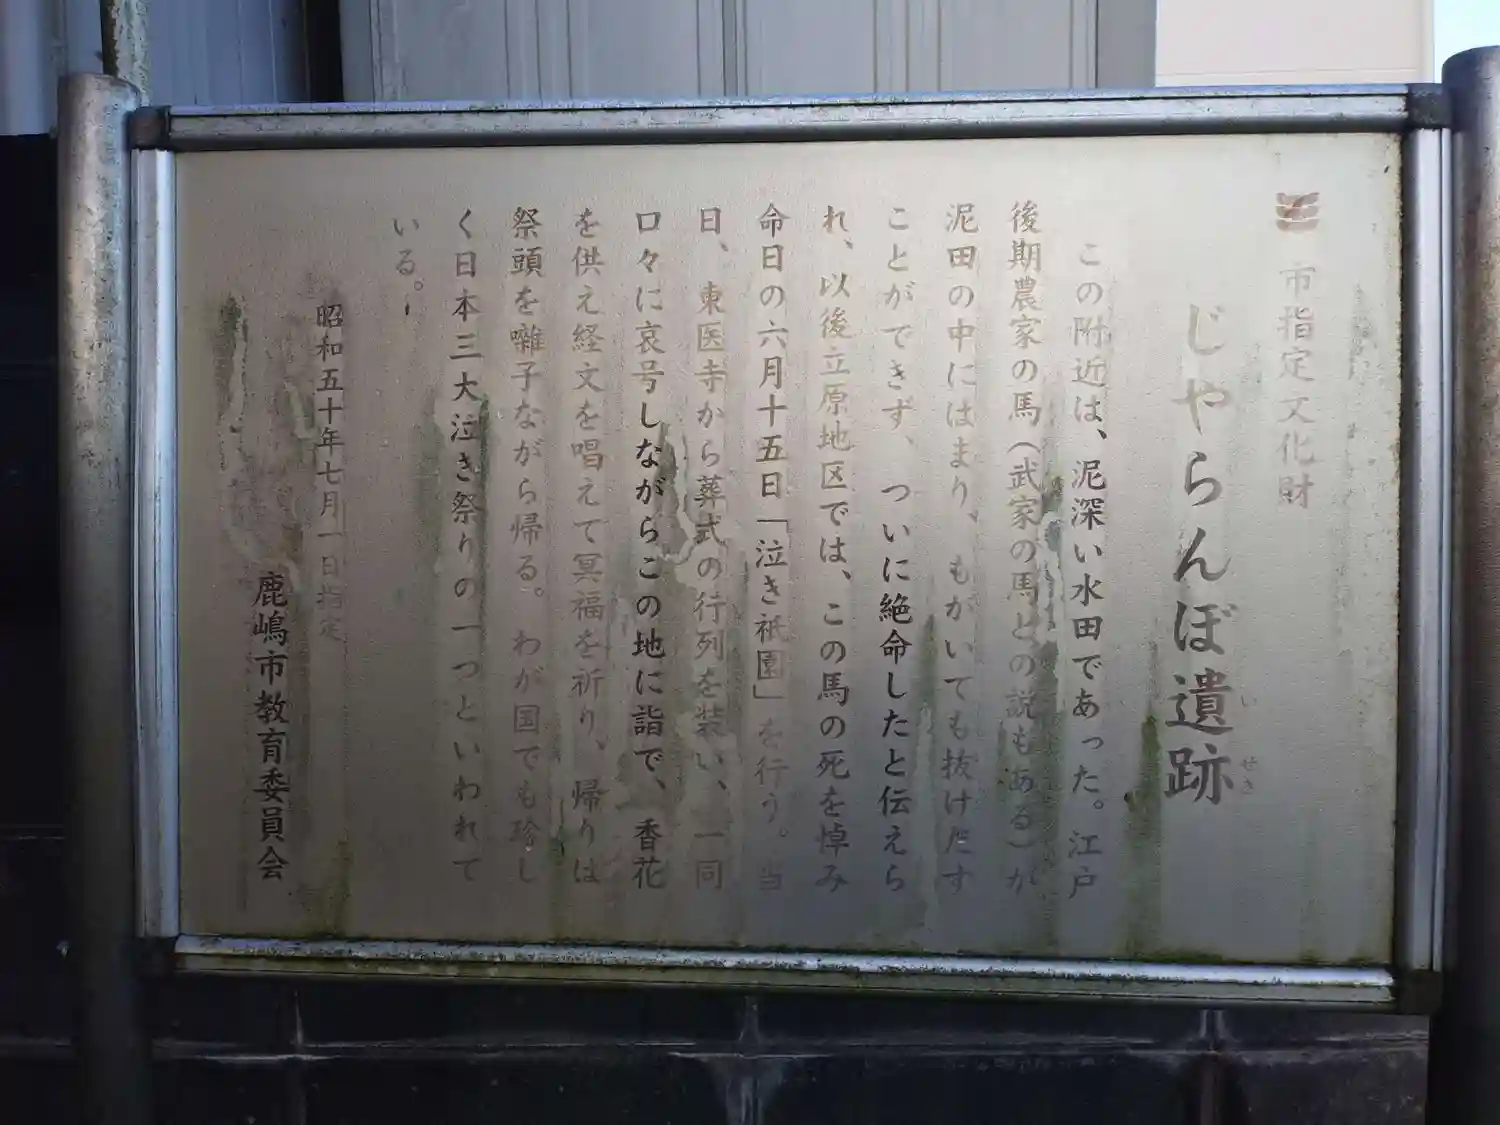 市指定文化財
じやらんぼ遺跡
いせき
この附近は、泥深い水田であった。江戸
後期農家の馬(武家の馬との説もある)が
泥田の中にはまり、もがいても抜けだす
ことができず、ついに絶命したと伝えら
れ、以後立原地区では、この馬の死を悼み
命日の六月十五日「泣き祇園」を行う。当
日、東医寺から葬式の行列を装い、一同
口々に哀号しながらこの地に詣で、香花
を供え経文を唱えて冥福を祈り、帰りは
祭頭を囃子ながら帰る。わが国でも珍し
く日本三大泣き祭りの一つといわれて
いる。
昭和五十年七月一日指定
鹿嶋市教育委員会